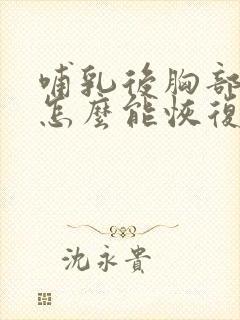 哺乳後胸部
怎麼能恢復
沈永貴